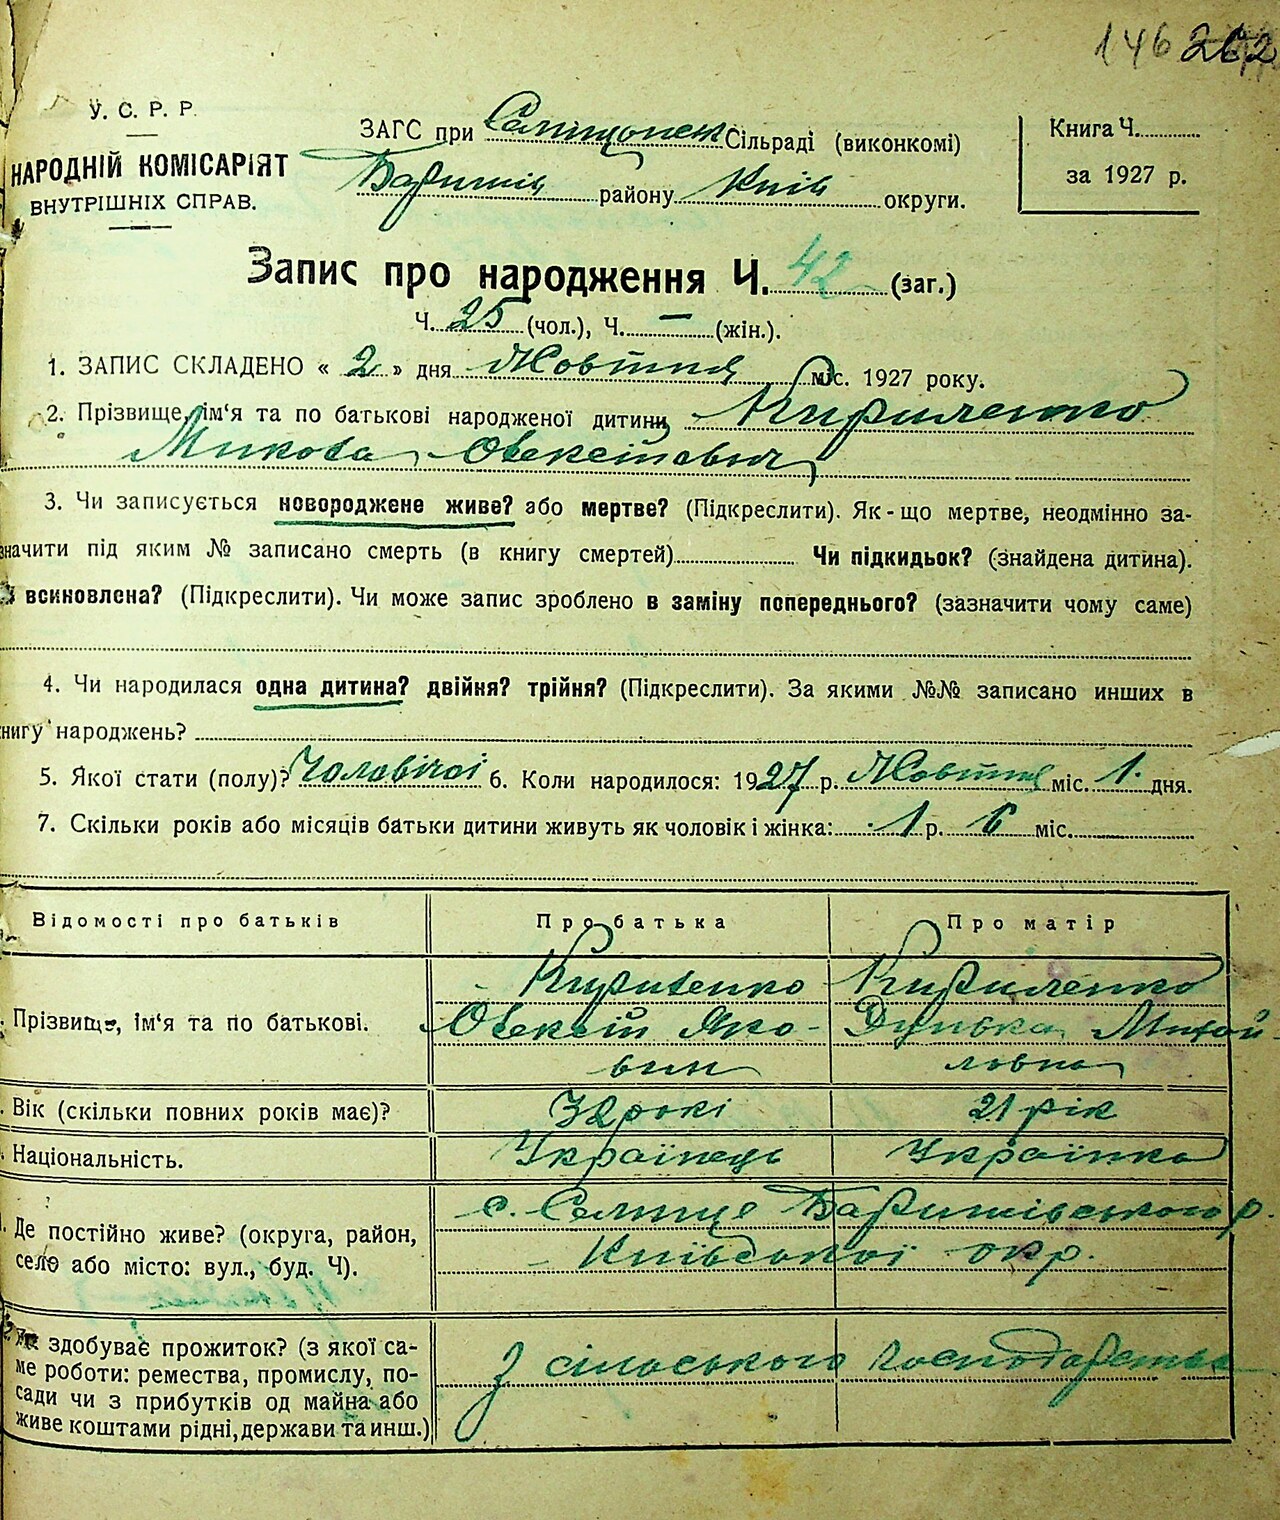 146 262
У. С. Р. Р.
НАРОДНІЙ КОМІСАРІЯТ
ВНУТРІШНІХ СПРАВ.
ЗАГС при Сілради (виконкомі)
Баришів району Київ округи.
Книга Ч.
за 1927 р.
Запис про народження Ч. 42 (заг.)
Ч. 25 (чол.), Ч. — (жін.).
1. ЗАПИС СКЛАДЕНО « 2 » дня Жовтня міс. 1927 року.
2. Прізвище, ім‘я та по батькові народженої дитини Кириленко
Микола Олексійович
3. Чи записується новороджене живе? або мертве? (Підкреслити). Як-що мертве, неодмінно за-
значити під яким № записано смерть (в книгу смертей) Чи підкидьок? (знайдена дитина).
всиновлена? (Підкреслити). Чи може запис зроблено в заміну попереднього? (зазначити чому саме)
4. Чи народилася одна дитина? двійня? трійня? (Підкреслити). За якими №№ записано инших в
книгу народжень?
5. Якої стати (полу)? Чоловічої 6. Коли народилося: 1927 р. Жовтня міс. 1. дня.
7. Скільки років або місяців батьки дитини живуть як чоловік і жінка: 1 р. 6 міс.
Відомості про батьків Про батька Про матір
Прізвище, ім‘я та по батькові. Кириленко Кириленко
Олексій Яко- Дунька Михай-
вич ловна
Вік (скільки повних років має)? 32 рокі 21 рік
Національність. Українець Українка
Де постійно живе? (округа, район, с. Селище Баришівського р.
село або місто: вул., буд. Ч). Київської окр.
Як здобуває прожиток? (з якої са-
ме роботи: ремества, промислу, по- З сільського господарства
сади чи з прибутків од майна або
живе коштами рідні, держави та инш.)